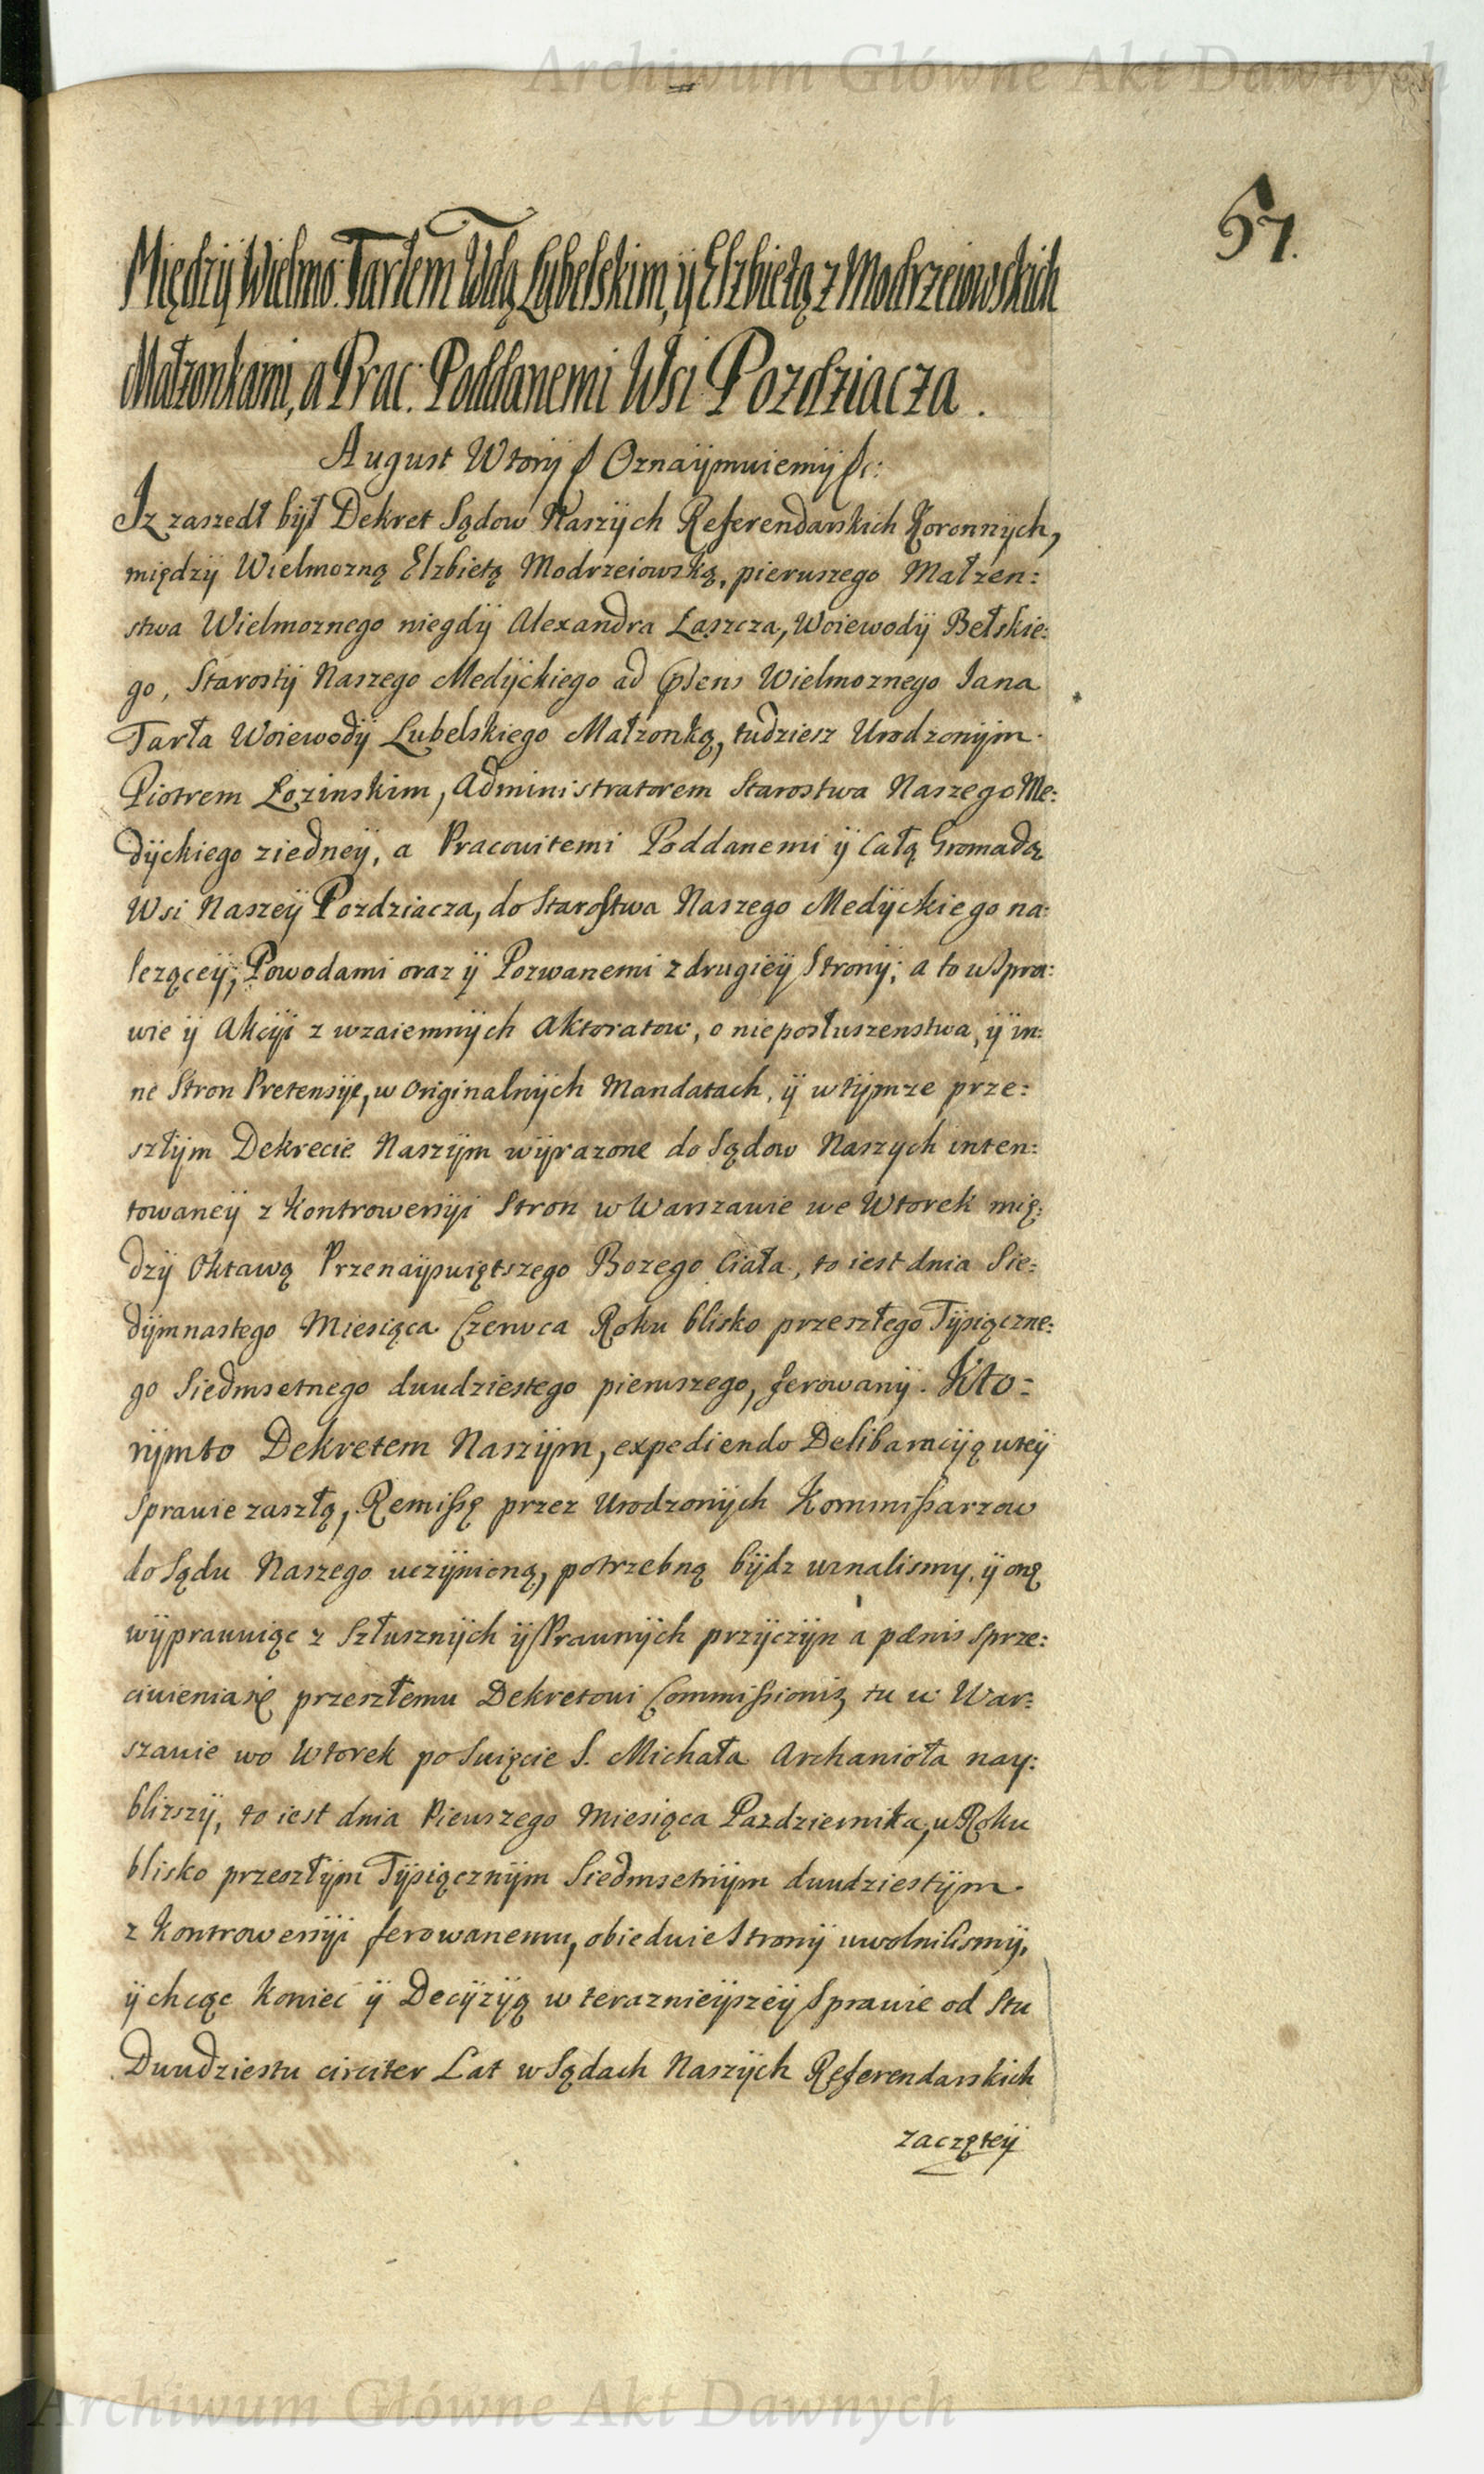 Archiwum Główne Akt Dawnych
57.
Międzÿ Wielmo: Tarłem Wdą Lubelskim, ÿ Elzbietą z Modrzeiowskich
Małzonkami, a Prac: Poddanemi Wsi Pozdziacza.
August Wtorÿ Oznaÿmuiemÿ
Jz zaszedł bÿł Dekret Sądow Naszÿch Referendarskich Koronnÿch,
międzÿ Wielmozną Elzbietą Modrzeiowską, pierwszego Małzen:
stwa Wielmoznego niegdÿ Alexandra Łaszcza, Woiewodÿ Bełskie:
go, Starostÿ Naszego Medÿckiego ad Wielmoznego Jana
Tarła Woiewodÿ Lubelskiego Małzonką, tudziesz Urodzonÿm
Piotrem Łozinskim, Administratorem Starostwa Naszego Me:
dÿckiego ziedneÿ, a Pracowitemi Poddanemi ÿ Całą Gromadą
Wsi Naszeÿ Pozdziacza, do Starostwa Naszego Medÿckiego na:
leząceÿ, Powodami oraz ÿ Pozwanemi z drugieÿ Stronÿ; a to w Spra:
wie ÿ Akcÿi z wzaiemnÿch Aktoratow, o nieposłuszenstwa, ÿ in:
ne Stron Pretensÿe, w Originalnÿch Mandatach, ÿ w tÿmze prze:
szłÿm Dekrecie Naszÿm wÿrazone do Sądow Naszych inten:
towaneÿ z Kontrowersÿi Stron w Warszawie we Wtorek mię:
dzÿ Oktawą Przenaÿswiętszego Bozego Ciała, to iest dnia Sie:
dÿmnastego Miesiąca Czerwca Roku blisko przeszłego Tÿsiączne:
go Siedmsetnego dwudziestego pierwszego, ferowanÿ. Kto:
rÿmto Dekretem Naszÿm, expediendo Deliberacÿą w teÿ
Sprawie zaszłą, Remissę przez Urodzonÿch Kommissarzow
do Sądu Naszego uczÿnioną, potrzebną bÿdz uznalismy, ÿ onę
wÿprawuiąc z Szłusznÿch ÿ Prawnÿch przÿczÿn a pœnis sprze:
ciwienia się przeszłemu Dekretowi Commissionis, tu w War:
szawie wo Wtorek po Swięcie S. Michała Archanioła nay:
blizszÿ, to iest dnia Pierwszego Miesiąca Pazdziernika, w Roku
blisko przeszłÿm Tÿsiącznÿm Siedmsetnÿm dwudziestÿm
z Kontrowersÿi ferowanemu, obiedwie Stronÿ uwolnilismÿ,
ÿ chcąc Koniec ÿ Decÿzÿą w terazniejszeÿ Sprawie od Stu
Dwudziestu circiter Lat w Sądach Naszÿch Referendarskich
zaczęteÿ
Archiwum Główne Akt Dawnych